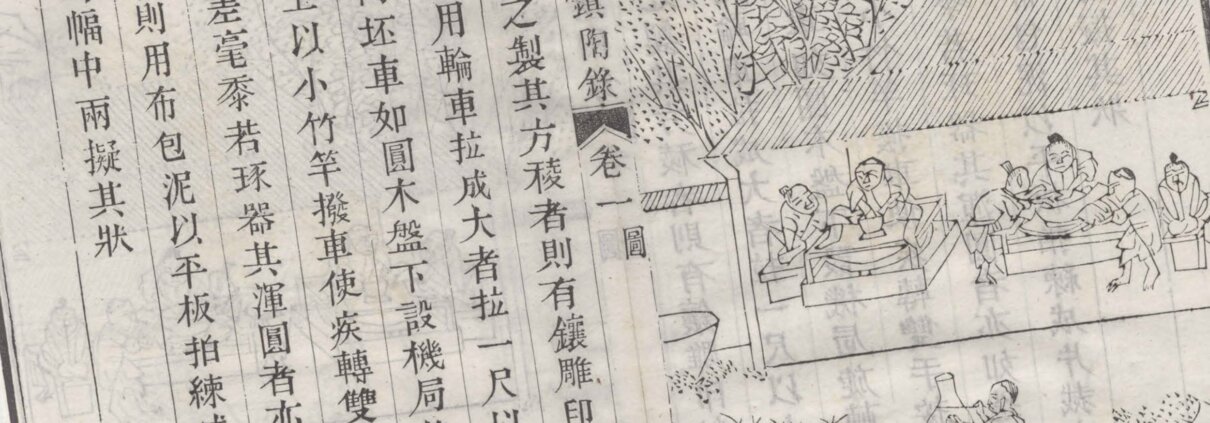 鎮陶錄 卷一 圖
之製其方稜者則有鑲雕印
用輪車拉成大者拉一尺以
坯車如圓木盤下設機局
上以小竹竿撥車使疾轉雙
差毫黍若琢器其渾圓者亦
則用布包泥以平板拍練成
幅中兩擬其狀